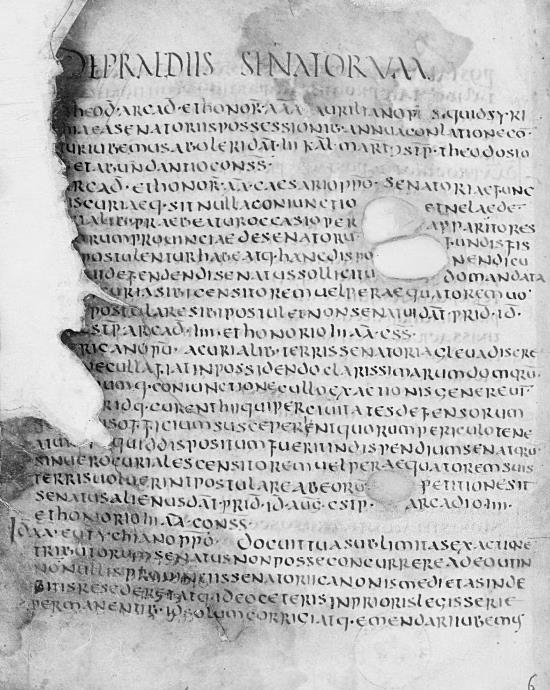 DE PRAEDIIS SENATORUM.
theod· arcad· et honor· aaa aureliano pu· siquid syri
senatoriis possessionib· annua conlatione
iubemus aboleri dat· iii kal· mart· stp· theodosio
et abundantio conss·
arcad· et honor· aa· caesario ppo· senatoriae func
curiaeq· sit nulla coniunctio et ne laede
praebeatur occasio per apparitores
provinciae de senatoru fundis fis
postulentur habeatq· hanc dispo nendi cu
defendendi senatus sollicitu do mandata
curia sibi censitorem uel peraequatorem uo
postulare sibi postulet non senatui dat· prid· id·
stp· arcad· iiii· et honorio iii· aa· css·
africano pu· a curialib· terris senatoria gleua discre
ulla fiat in possidendo clarissimarum domoru
coniunctione ullo exactionis genere ut
curent hi qui per ciuitates defensorum
officium susceperint quorum periculo tene
quid dispositum fuerit in dispendium senatoru
sin uero curiales censitorem uel peraequatorem suis
terris uoluerint postulare ab eoru petitione sit
senatus alienus dat· prid· id· aug· cstp· arcadio iiii·
et honorio iii· aa· conss·
Idaa· eutychiano ppo· docuit tua sublimitas exactione
tributorum senatus non posse concurrere adeo ut in
nonnullis provinciis senatorii canonis medietas in de
bitis resederit atq· ideo ceteris in prioris legis serie
permanentib· id solum corrigi atq· emendari iubemus
6